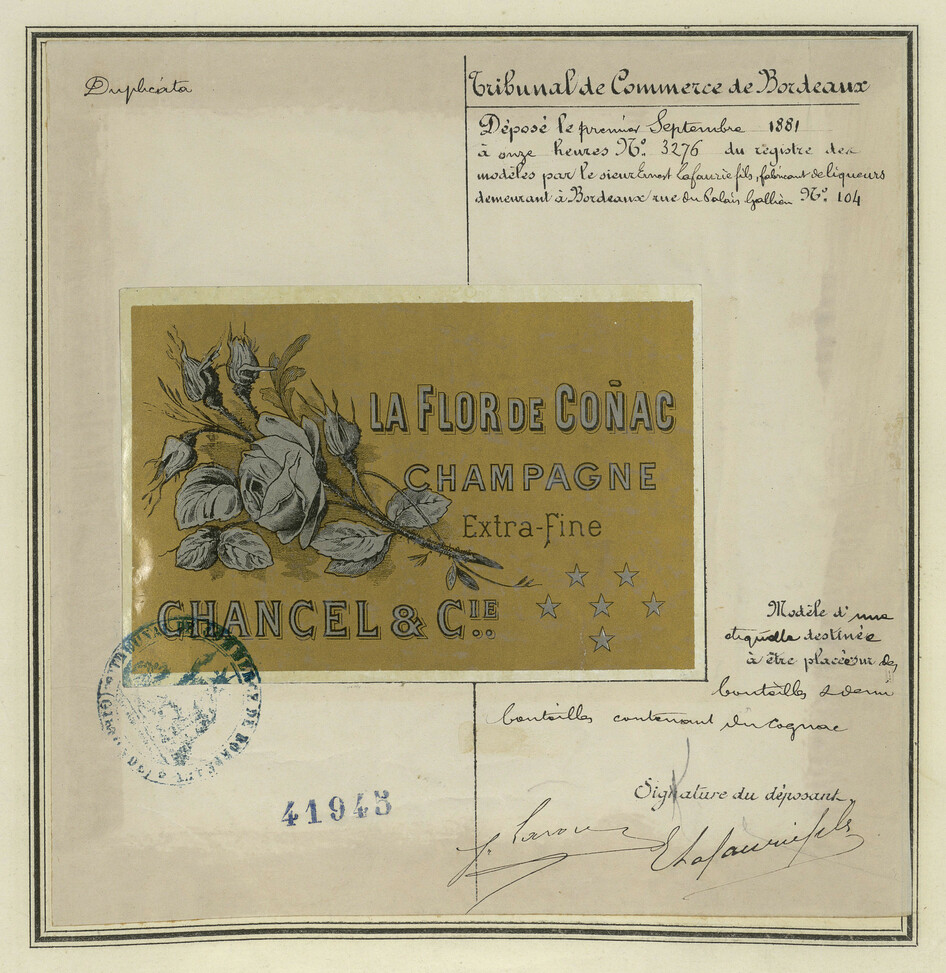 Duplicata
Tribunal de Commerce de Bordeaux
Déposé le premier Septembre 1881
à onze heures Nº 3276 du registre des
modèles par le sieur Ernest Lafaurie fils, fabricant de liqueurs
demeurant à Bordeaux rue du Palais Gallien Nº 104
LA FLOR DE COÑAC
CHAMPAGNE
Extra-Fine
CHANCEL & CIE
Modèle d'une
étiquette destinée
à être placée sur des
bouteilles & demi
bouteilles contenant du Cognac
TRIBUNAL DE COMMERCE DE BORDEAUX
41945
Signature du déposant,
E Lafaurie fils